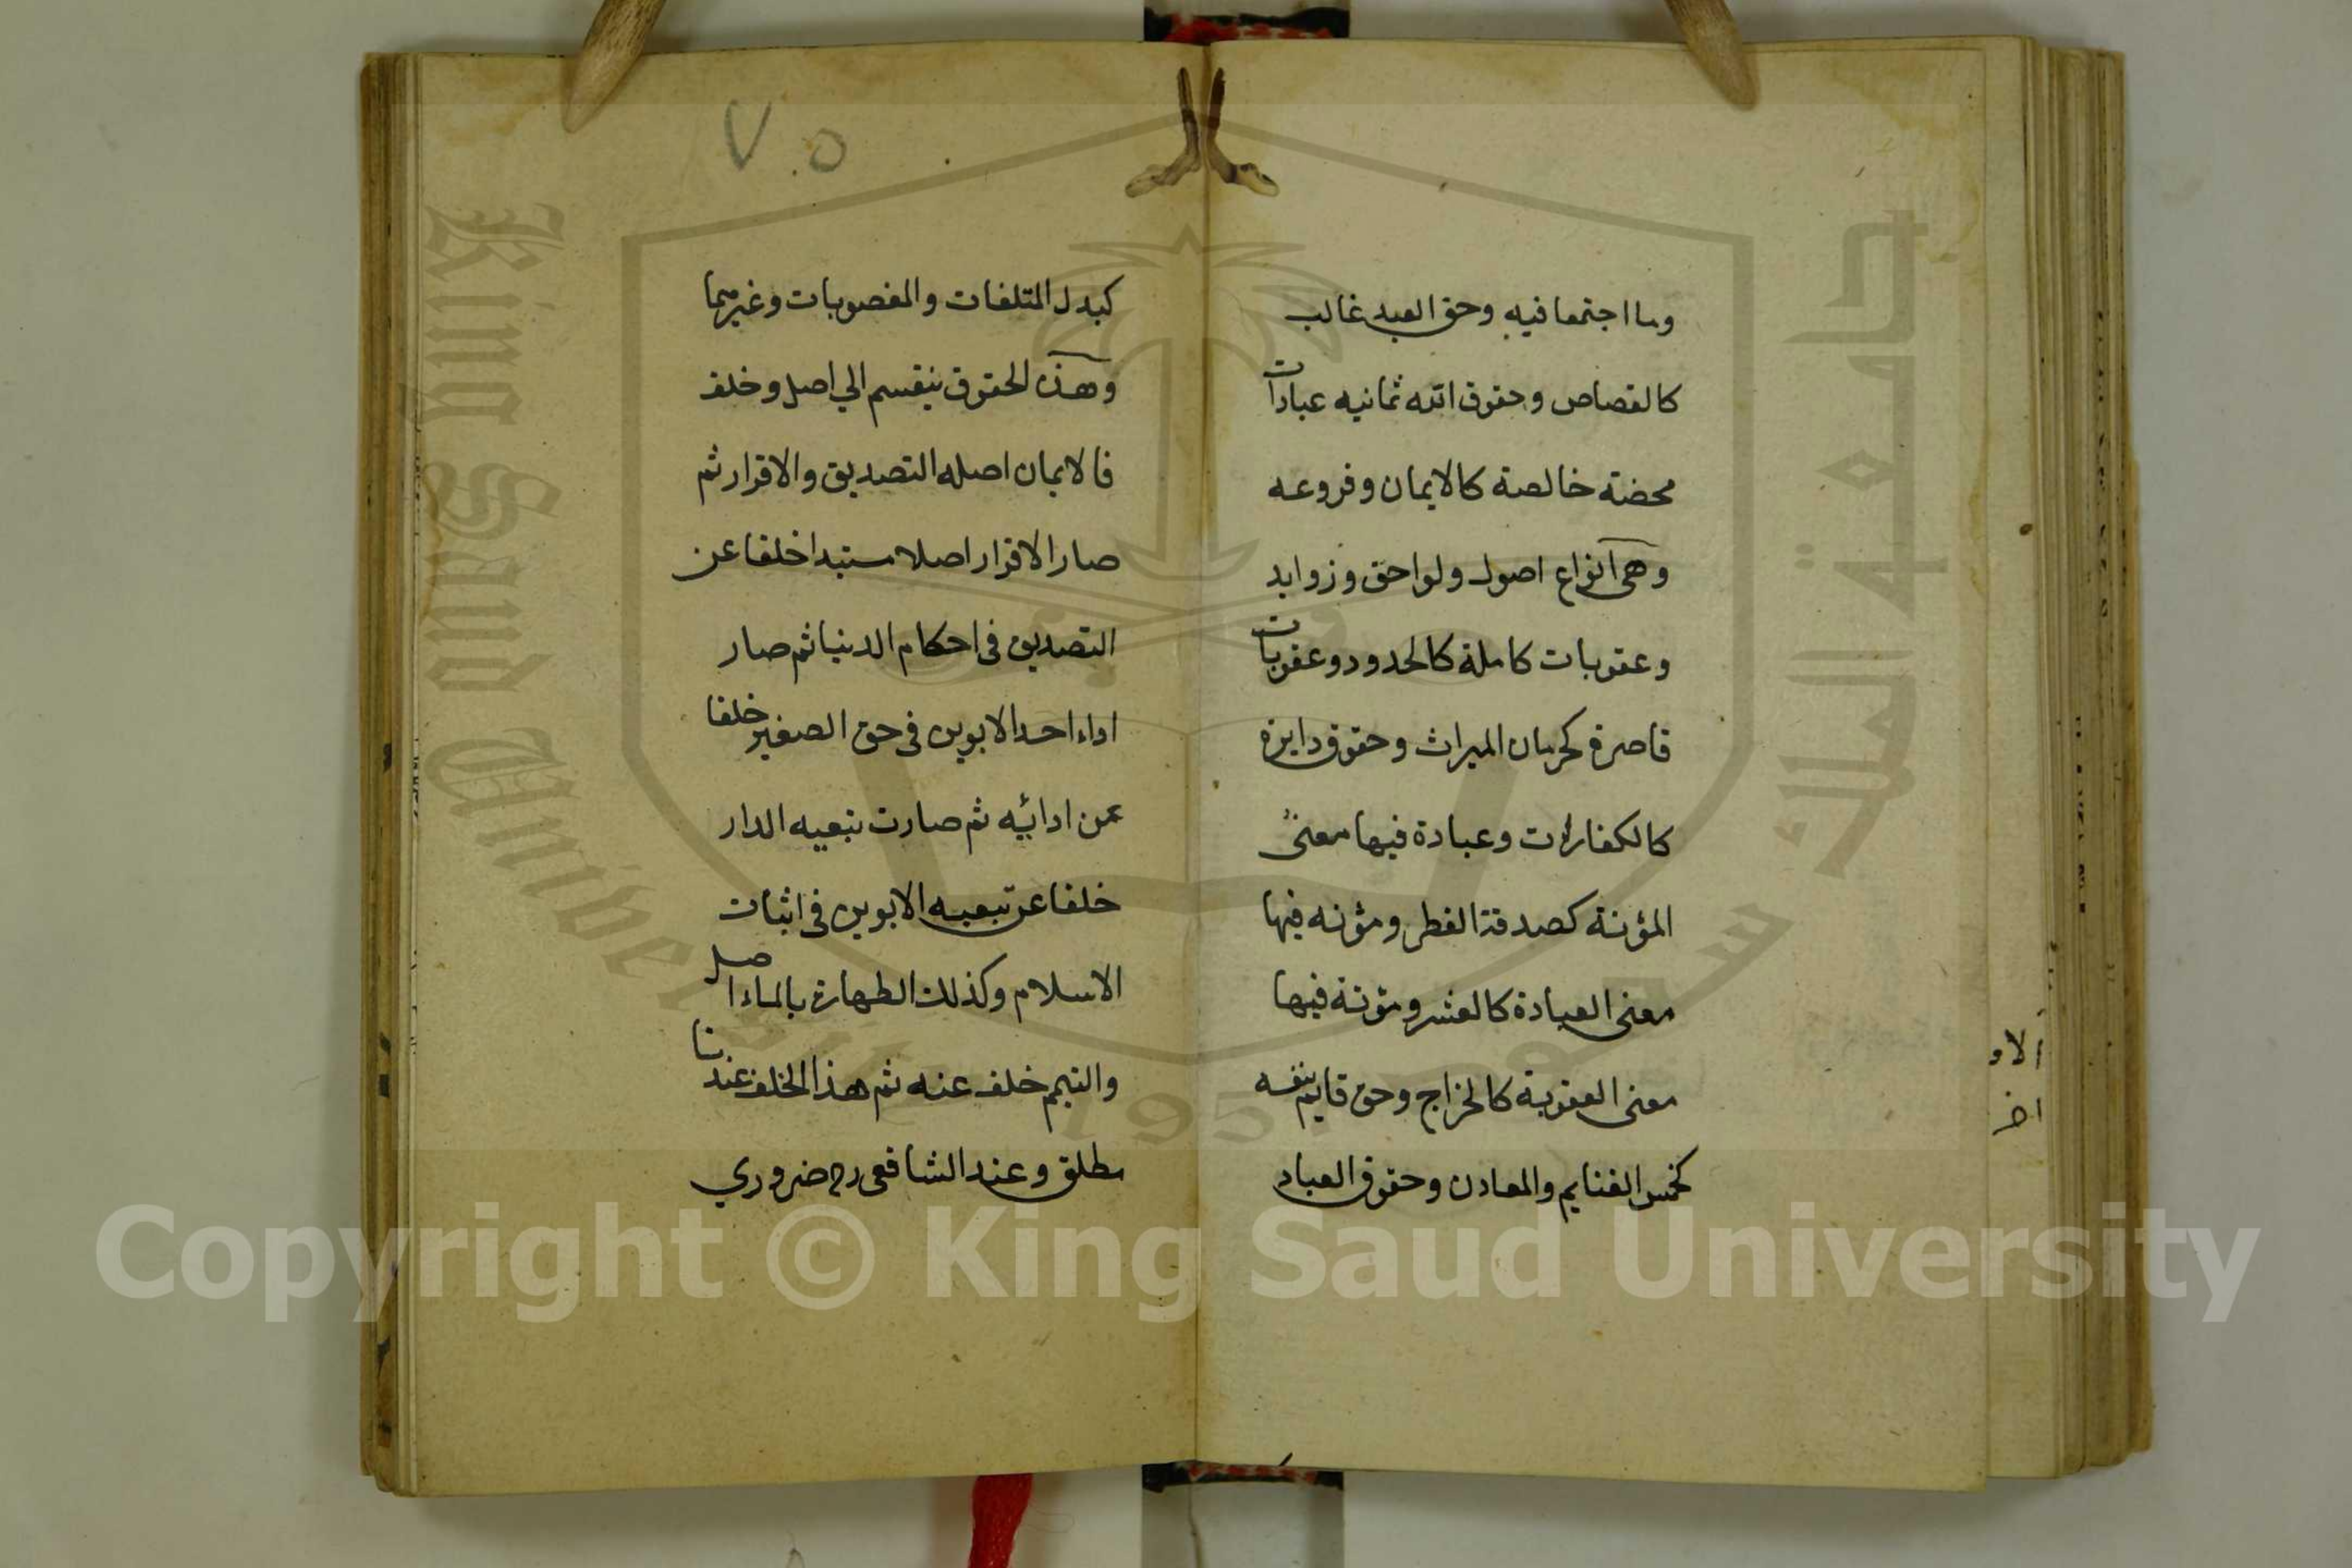 وما اجتمعا فيه وحق العبد غالب
كالقصاص وحقوق الله ثمانيه عبادات
محضته خالصة كالايمان وفروعه
وهى انواع اصول ولواحق وزوايد
وعقوبات كاملة كالحدود وعقوبات
قاصرة كحرمان الميراث وحقوق دايرة
كالكفارات وعبادة فيها معنى
المؤنة كصدقة الفطر ومؤنه فيها
معنى العبادة كالعشر ومؤنة فيها
معنى العقوبة كالخراج وحق قايم بنفسه
كخمس الغنايم والمعادن وحقوق العباد
٧٠٥
كبدل المتلفات والمغصوبات وغيرهما
وهذه الحقوق ينقسم الي اصل وخلف
فالايمان اصله التصديق والاقرار ثم
صار الاقرار اصلا مستبدا خلفا عن
التصديق فى احكام الدنيا ثم صار
اداء احد الابوين فى حق الصغير خلفا
عن ادائيه ثم صارت تبعيه الدار
خلفا عن تبعيه الابوين فى اثبات
الاسلام وكذلك الطهارة بالماء اصل
والتيمم خلف عنه ثم هذا الخلف عندنا
مطلق وعند الشافعى رح ضروري
الاو
اخر
King Saud University
جامعة الملك سعود
1957
Copyright © King Saud University